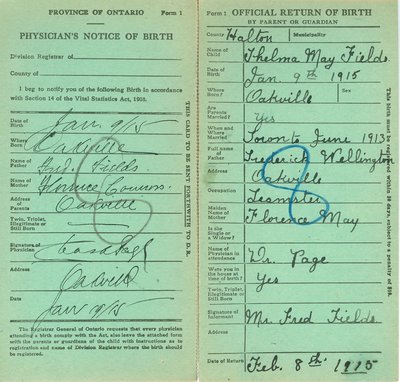 PROVINCE OF ONTARIO Form 1
PHYSICIAN'S NOTICE OF BIRTH
Division Registrar of
County of
I beg to notify you of the following Birth in accordance
with Section 14 of the Vital Statistics Act, 1908.
Date of Birth Jan 9/15
Where Born? Oakville
Name of Father Fred. Fields
Name of Mother Florence
Address of Parents Oakville
Twin, Triplet, Illegitimate or Still Born
Signature of Physician
Address Oakville
Date Jan 9/15
The Registrar General of Ontario requests that every physician
attending a birth comply with the Act, also leave the attached form
with the parents or guardians of the child with instructions as to
registration and name of Division Registrar where the birth should
be registered.
THIS CARD TO BE SENT FORTHWITH TO D.R.
Form 1 OFFICIAL RETURN OF BIRTH
BY PARENT OR GUARDIAN
County Halton Municipality
Name of Child Thelma May Fields
Date of Birth Jan. 9th 1915
Where Born? Oakville Sex
Are Parents Married? Yes
When and Where Married Toronto June 1913
Full name of Father Frederick Wellington
Address Oakville
Occupation Teamster
Maiden Name of Mother Florence May
Is she Single or a Widow?
Name of Physician in attendance Dr. Page
Were you in the house at time of birth? Yes
Twin, Triplet, Illegitimate or Still Born
Signature of Informant Mr. Fred Fields
Address
Date of Return Feb. 8th 1915
This birth must be registered within 30 days, subject to a penalty of
8